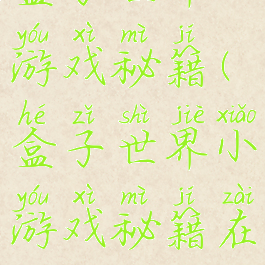 yóu xì mì jí
游戏秘籍(
hé zǐ shì jiè xiǎo
盒子世界小
yóu xì mì jí zài
游戏秘籍在